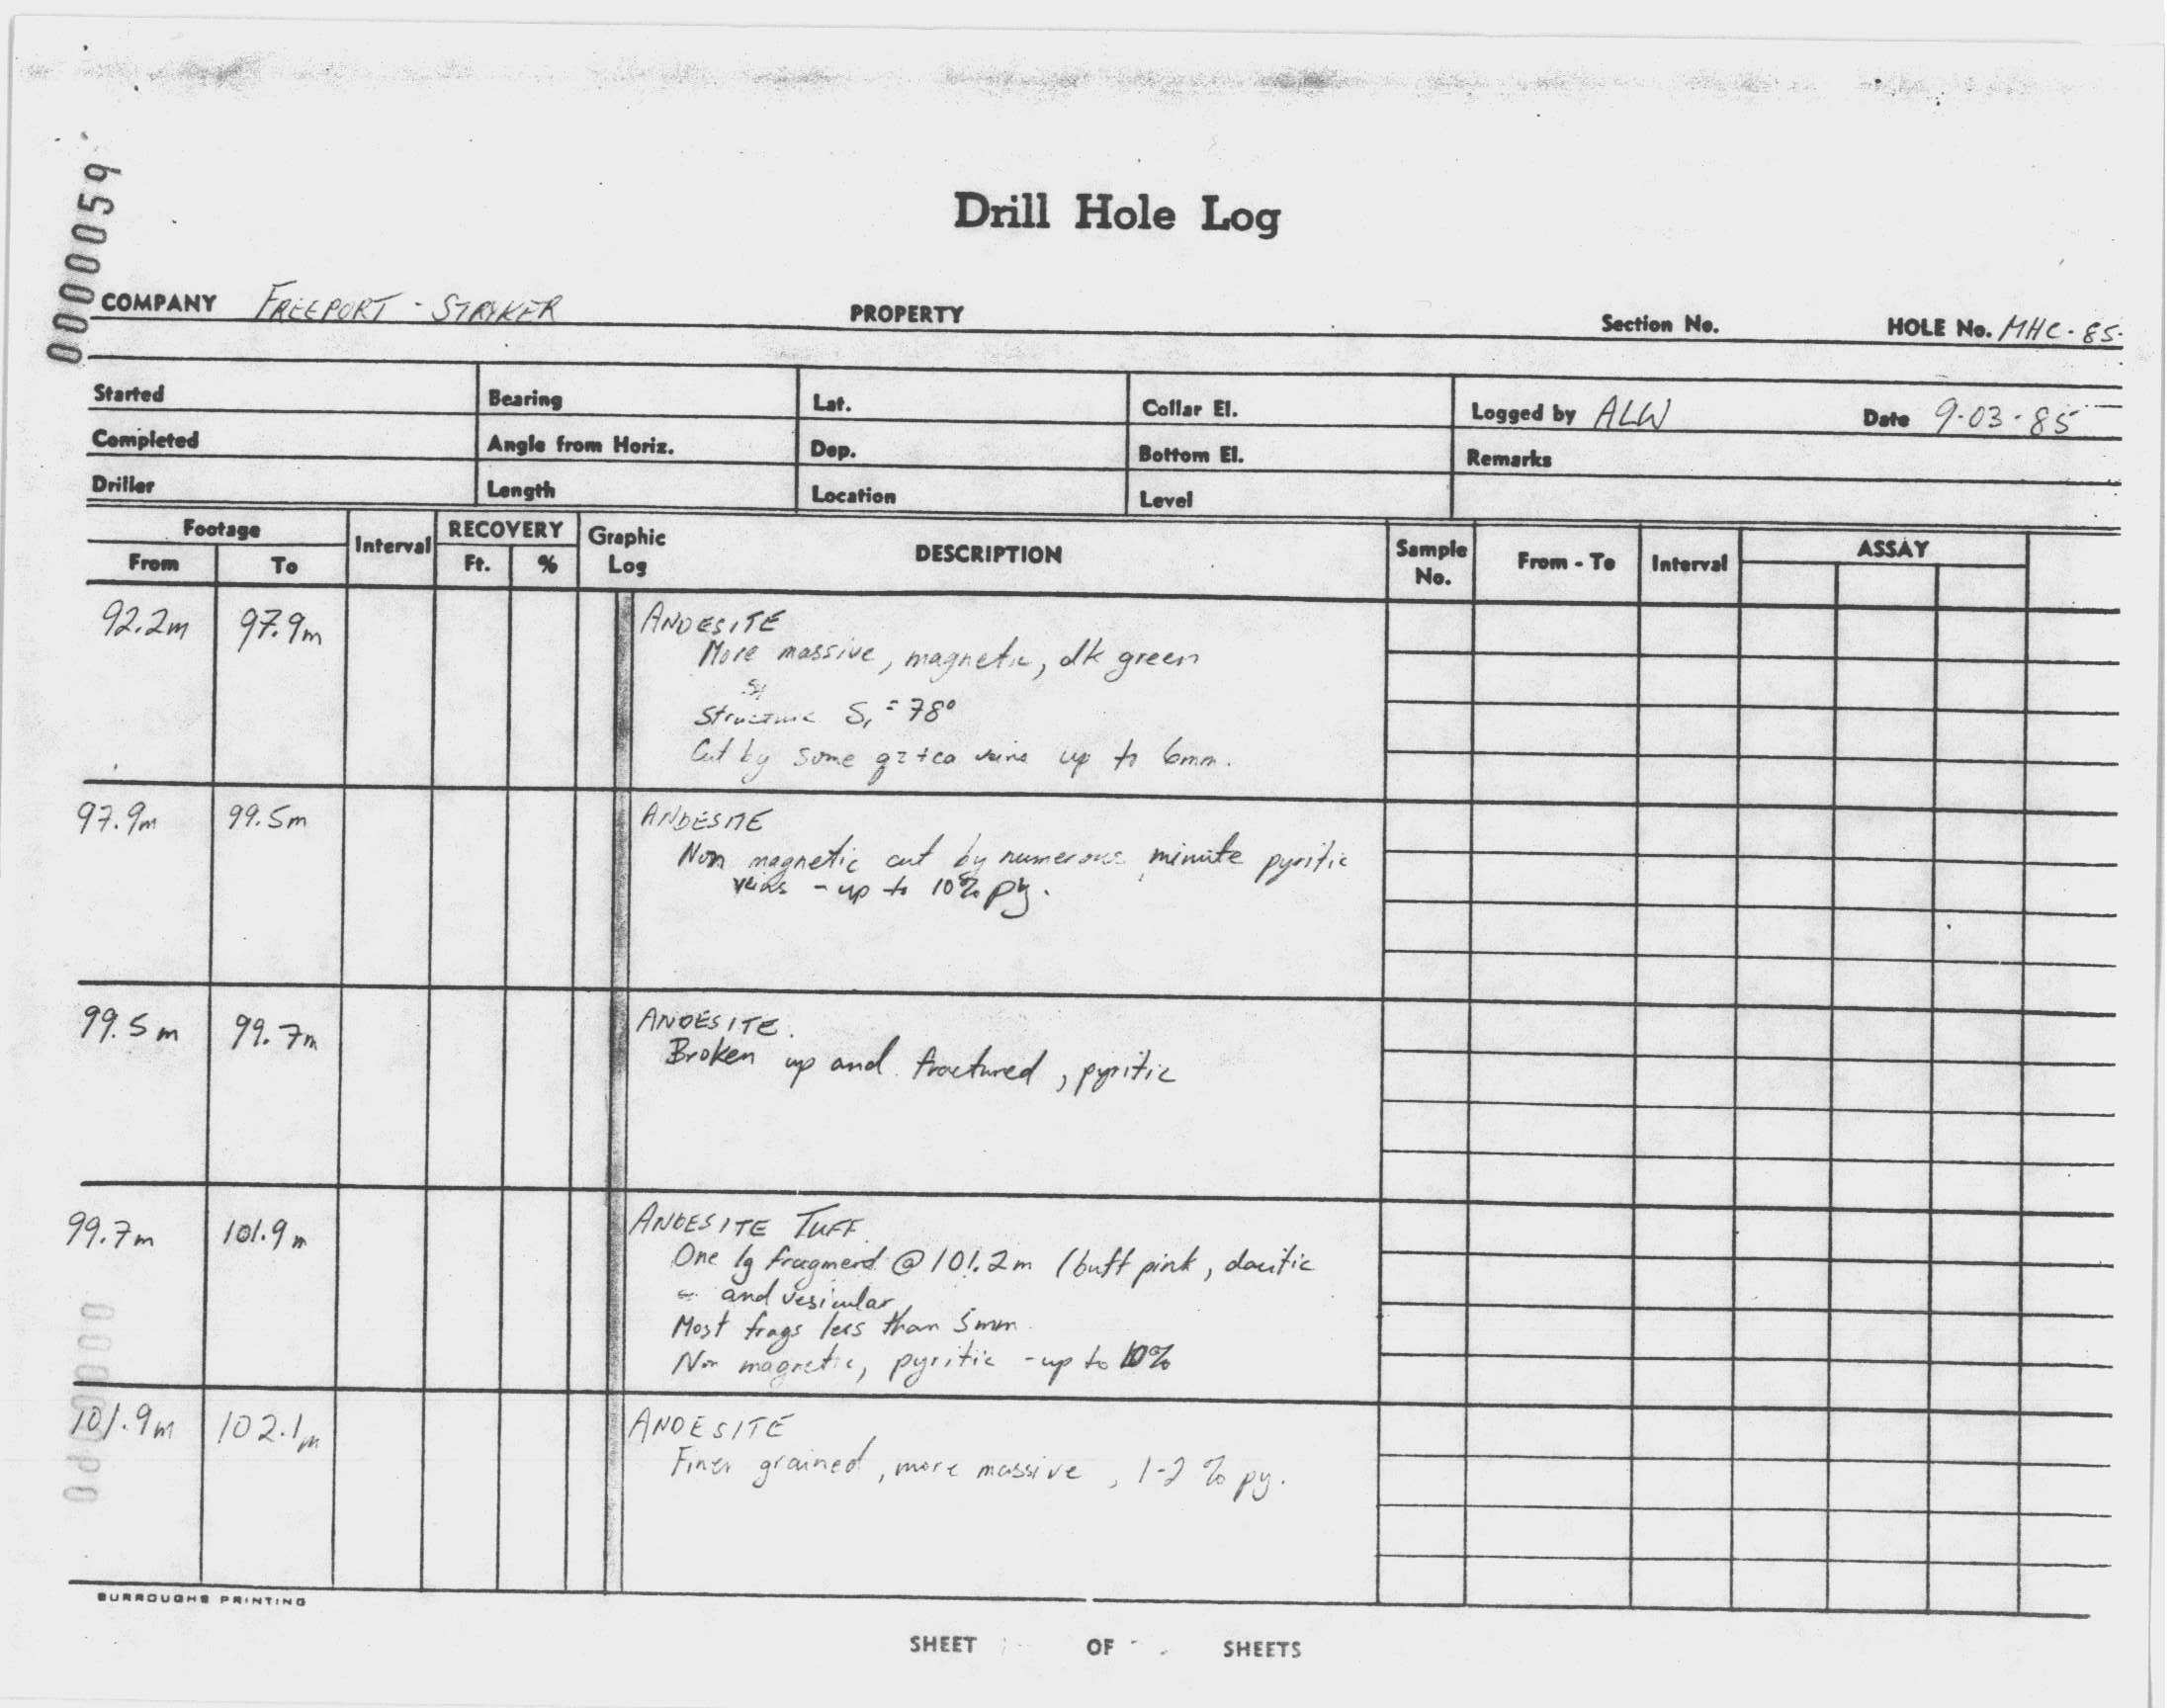 0000059
Drill Hole Log
COMPANY FREEPORT - STRYKER PROPERTY Section No. HOLE No. MHC-85-
Started Bearing Lat. Collar El. Logged by ALW Date 9-03-85
Completed Angle from Horiz. Dep. Bottom El. Remarks
Driller Length Location Level
Footage Interval RECOVERY Graphic Log DESCRIPTION Sample No. From - To Interval ASSAY
From To Ft. %
92.2m 97.9m ANDESITE
More massive, magnetic, dk green
Structure S₁ = 78°
Cut by some qz+ca veins up to 6mm.
97.9m 99.5m ANDESITE
Non magnetic cut by numerous minute pyritic
veins - up to 10% py.
99.5m 99.7m ANDESITE.
Broken up and fractured, pyritic
99.7m 101.9m ANDESITE TUFF.
One lg fragment @ 101.2m (buff pink, dacitic
and vesicular
Most frags less than 5mm
Non magnetic, pyritic - up to 10%
101.9m 102.1m ANDESITE
Finer grained, more massive, 1-2% py.
BURROUGHS PRINTING
SHEET OF SHEETS